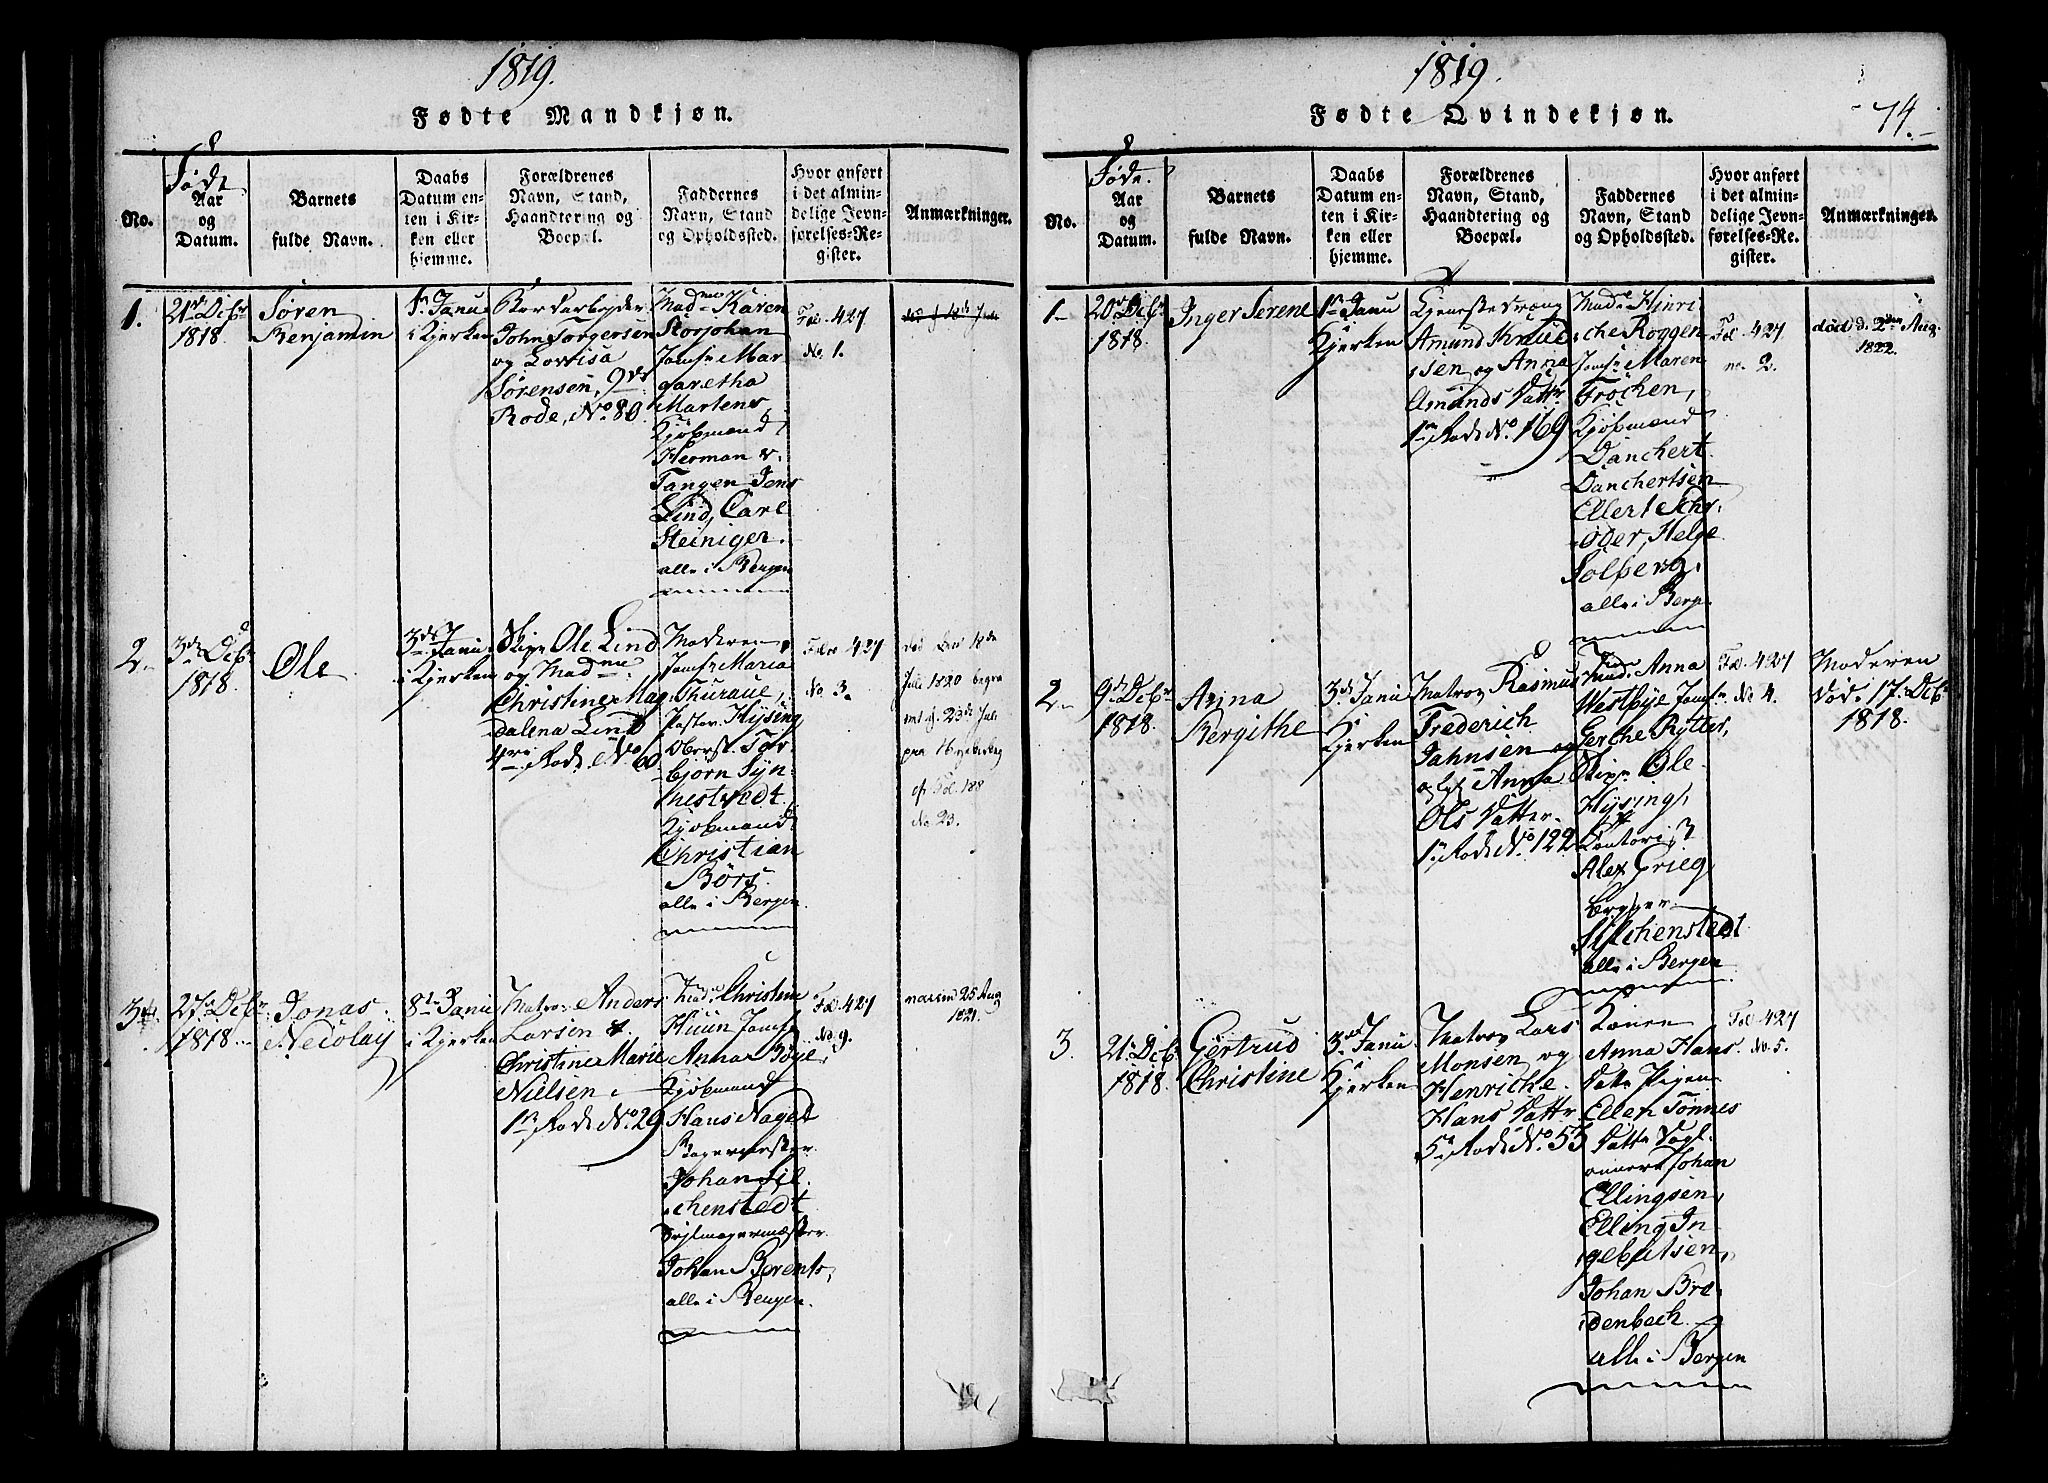 1819.
Fødte Mandkjøn.
No.
Føde
Aar
og
Datum.
Barnets
fulde Navn.
Daabs
Datum en-
ten i Kir-
ken eller
hjemme.
Forældrenes
Navn, Stand,
Haandtering og
Boepæl.
Faddernes
Navn, Stand
og Opholdssted.
Hvor anført
i det almin-
delige Jevn-
førelses-Re-
gister.
Anmærkninger.
1.
21de Decbr
1818.
Søren
Benjamin
1ste Janu
i Kjerken
John Jorgersen
og Lovisa
Sørensen, 9de
Rode, No. 80.
Madme Karen
Storjohan
Jomfr Mar
garetha
Martens
Kjøbmænd
Herman v.
Tangen Jens
Lind, Carl
Steiniger.
alle i Bergen
Fol. 427
No. 1.
2.
3de Decbr
1818.
Ole
3de Janu
i Kjerken
Skipr Ole Lind
og Madme
Christine Mag
dalena Lind
4de Rode No 60
Moderen,
Jomfr Maria
Thuraue,
Pastor Hysing
Oberst. Tor
bjørn Syn-
nestvedt.
Kjøbmænd
Christian
Børs.
alle i Bergen
Folio 427
No 3.
død den 18de
Juli 1820 begra
vet d. 23de Juli
Fol. 188
No 23.
3.
27de Decbr
1818.
Jonas
Necolay
8de Janu
i Kjerken
Matros Anders
Larsen &
Christine Marie
Nielsen.
1ste Rode No. 29
Christine
Huun Jomfr
Anna Bøye,
Kjøbmænd
Hans Nagel
Bagermester
Johan Sil
chenstedt
Seilmagermæster
Johan Berents,
alle i Bergen.
Fol. 427
No 9.
vaccin 25 Aug
1821.
1819.
Fødte Qvindekjøn.
74.
No.
Føde.
Aar
og
Datum.
Barnets
fulde Navn.
Daabs
Datum en-
ten i Kir-
ken eller
hjemme.
Forældrenes
Navn, Stand,
Haandtering og
Boepæl.
Faddernes
Navn, Stand
og Opholdssted.
Hvor anført
i det almin-
delige Jevn-
førelses-Re-
gister.
Anmærkninger.
1
20de Decbr
1818.
Inger Serene
1ste Janu
Kjerken
Tjenestedreng
Amund Knud
sen og Anna
Amunds Datter
1ste Rode No. 169
Made Hinri
che Roggen
Jomfr Maren
Frochen,
Kjøbmænd
Danchert
Danchertsen
Ellert Schr
oder, Helge
Solberg,
alle i Berge.
Fol. 427
no. 2.
død d. 2den Aug.
1822.
2.
9de Decbr
1818.
Anna
Bergithe
3de Janu
i
Kjerken
Matros Rasmus
Frederich
Jahnsen og
Anna
Ols Datter
1ste Rode No. 122
Made. Anna
Westbye Jomfr
Gerche Rytter,
Skipr Ole
Hysing,
Contorist
Alex Grieg
Silchenstedt
alle i Bergen
Fol. 427
No 4.
Moderen
død. 17. Decbr
1818.
3.
21. Decbr
1818.
Gertrud
Christine
3de Janu
i
Kjerken
Matros Lars
Monsen og
Henriche
Hans Dattr
5te Rode No. 53
Konen
Anna Hans
Datter Pigen
Ellen Tonnes
Datter
Johan
Ellingsen,
Elling In-
gebretsen,
Johan Bre
denbech.
alle i Bergen
Fol. 427
No. 5.